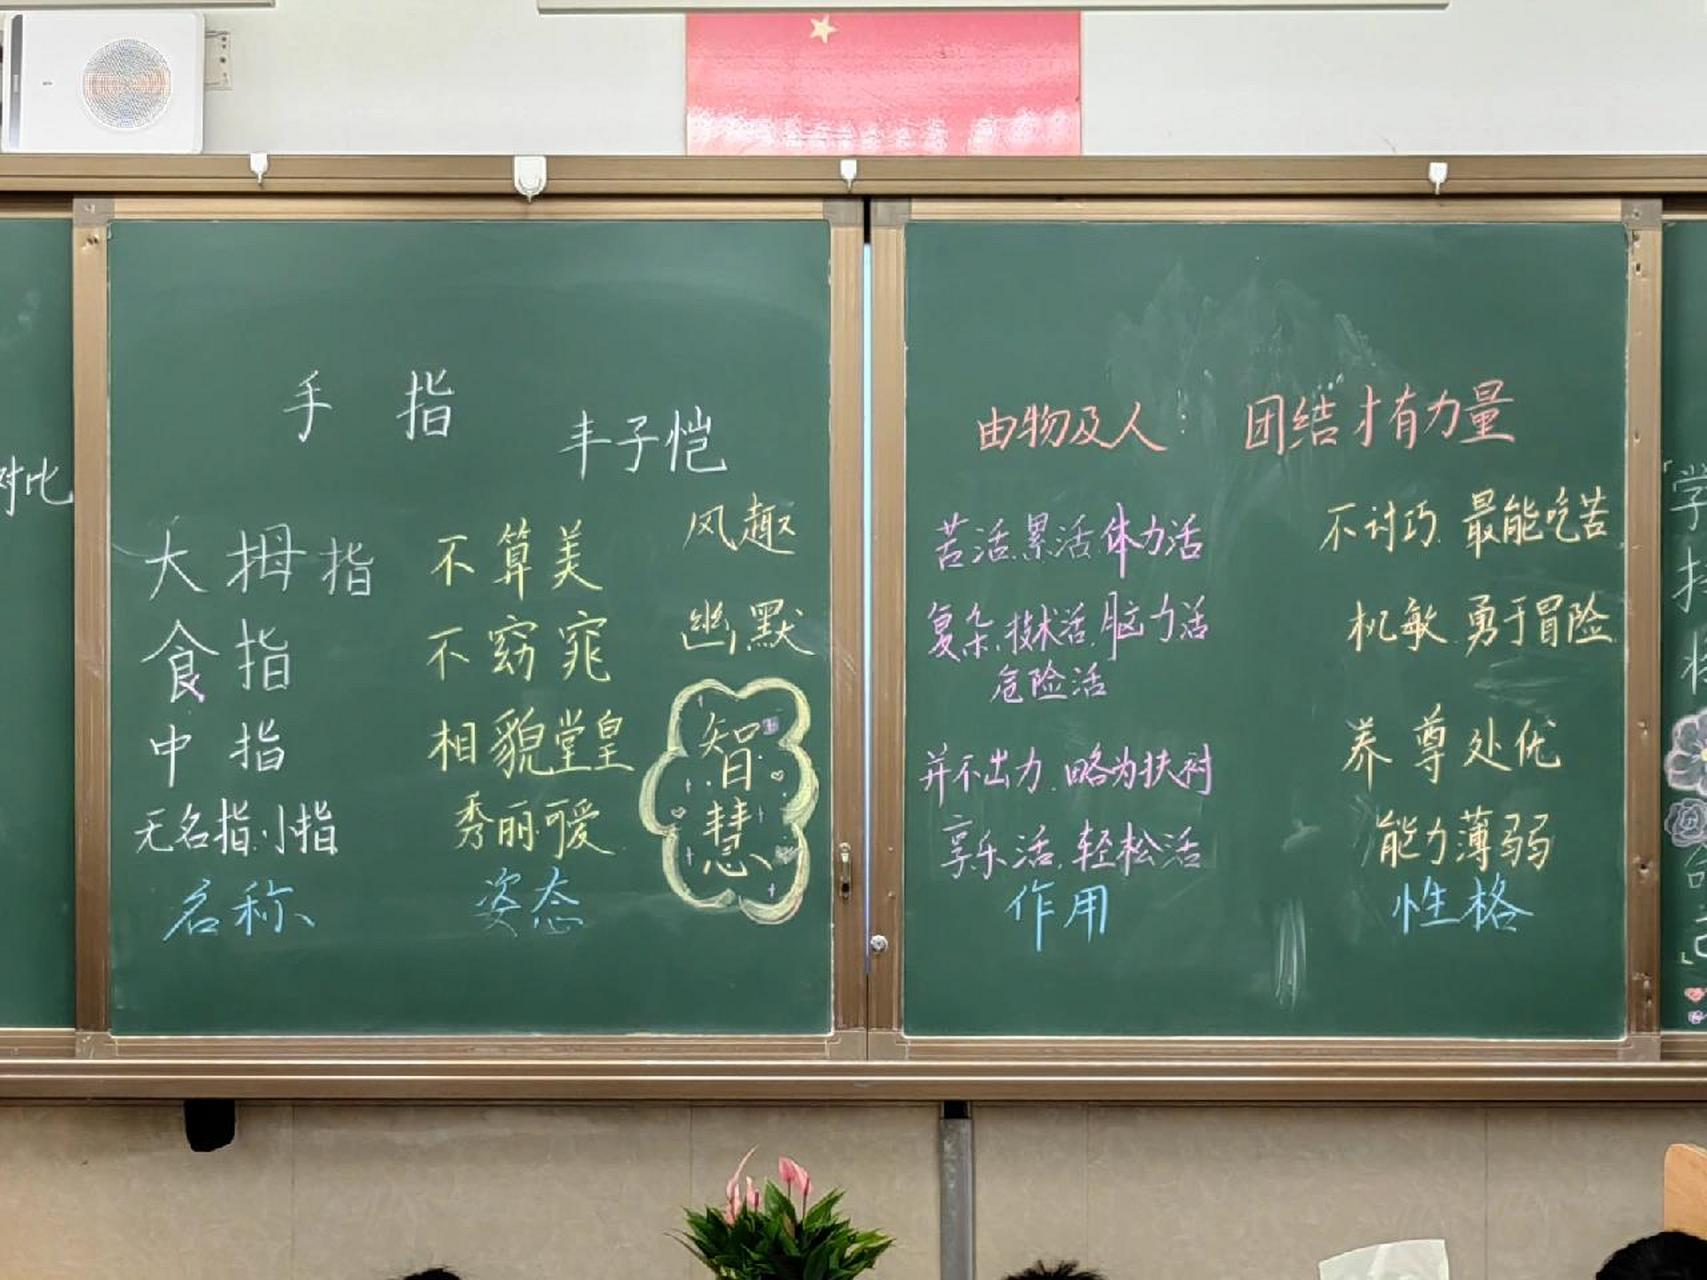 对比
手 指
丰子恺
大拇指 不算美 风趣
食指 不窈窕 幽默
中指 相貌堂皇 智慧
无名指、小指 秀丽可爱
名称 姿态
由物及人: 团结才有力量
苦活、累活、体力活 不讨巧、最能吃苦
复杂、技术活、脑力活 机敏、勇于冒险
危险活
并不出力、略为扶衬 养尊处优
享乐活、轻松活 能力薄弱
作用 性格